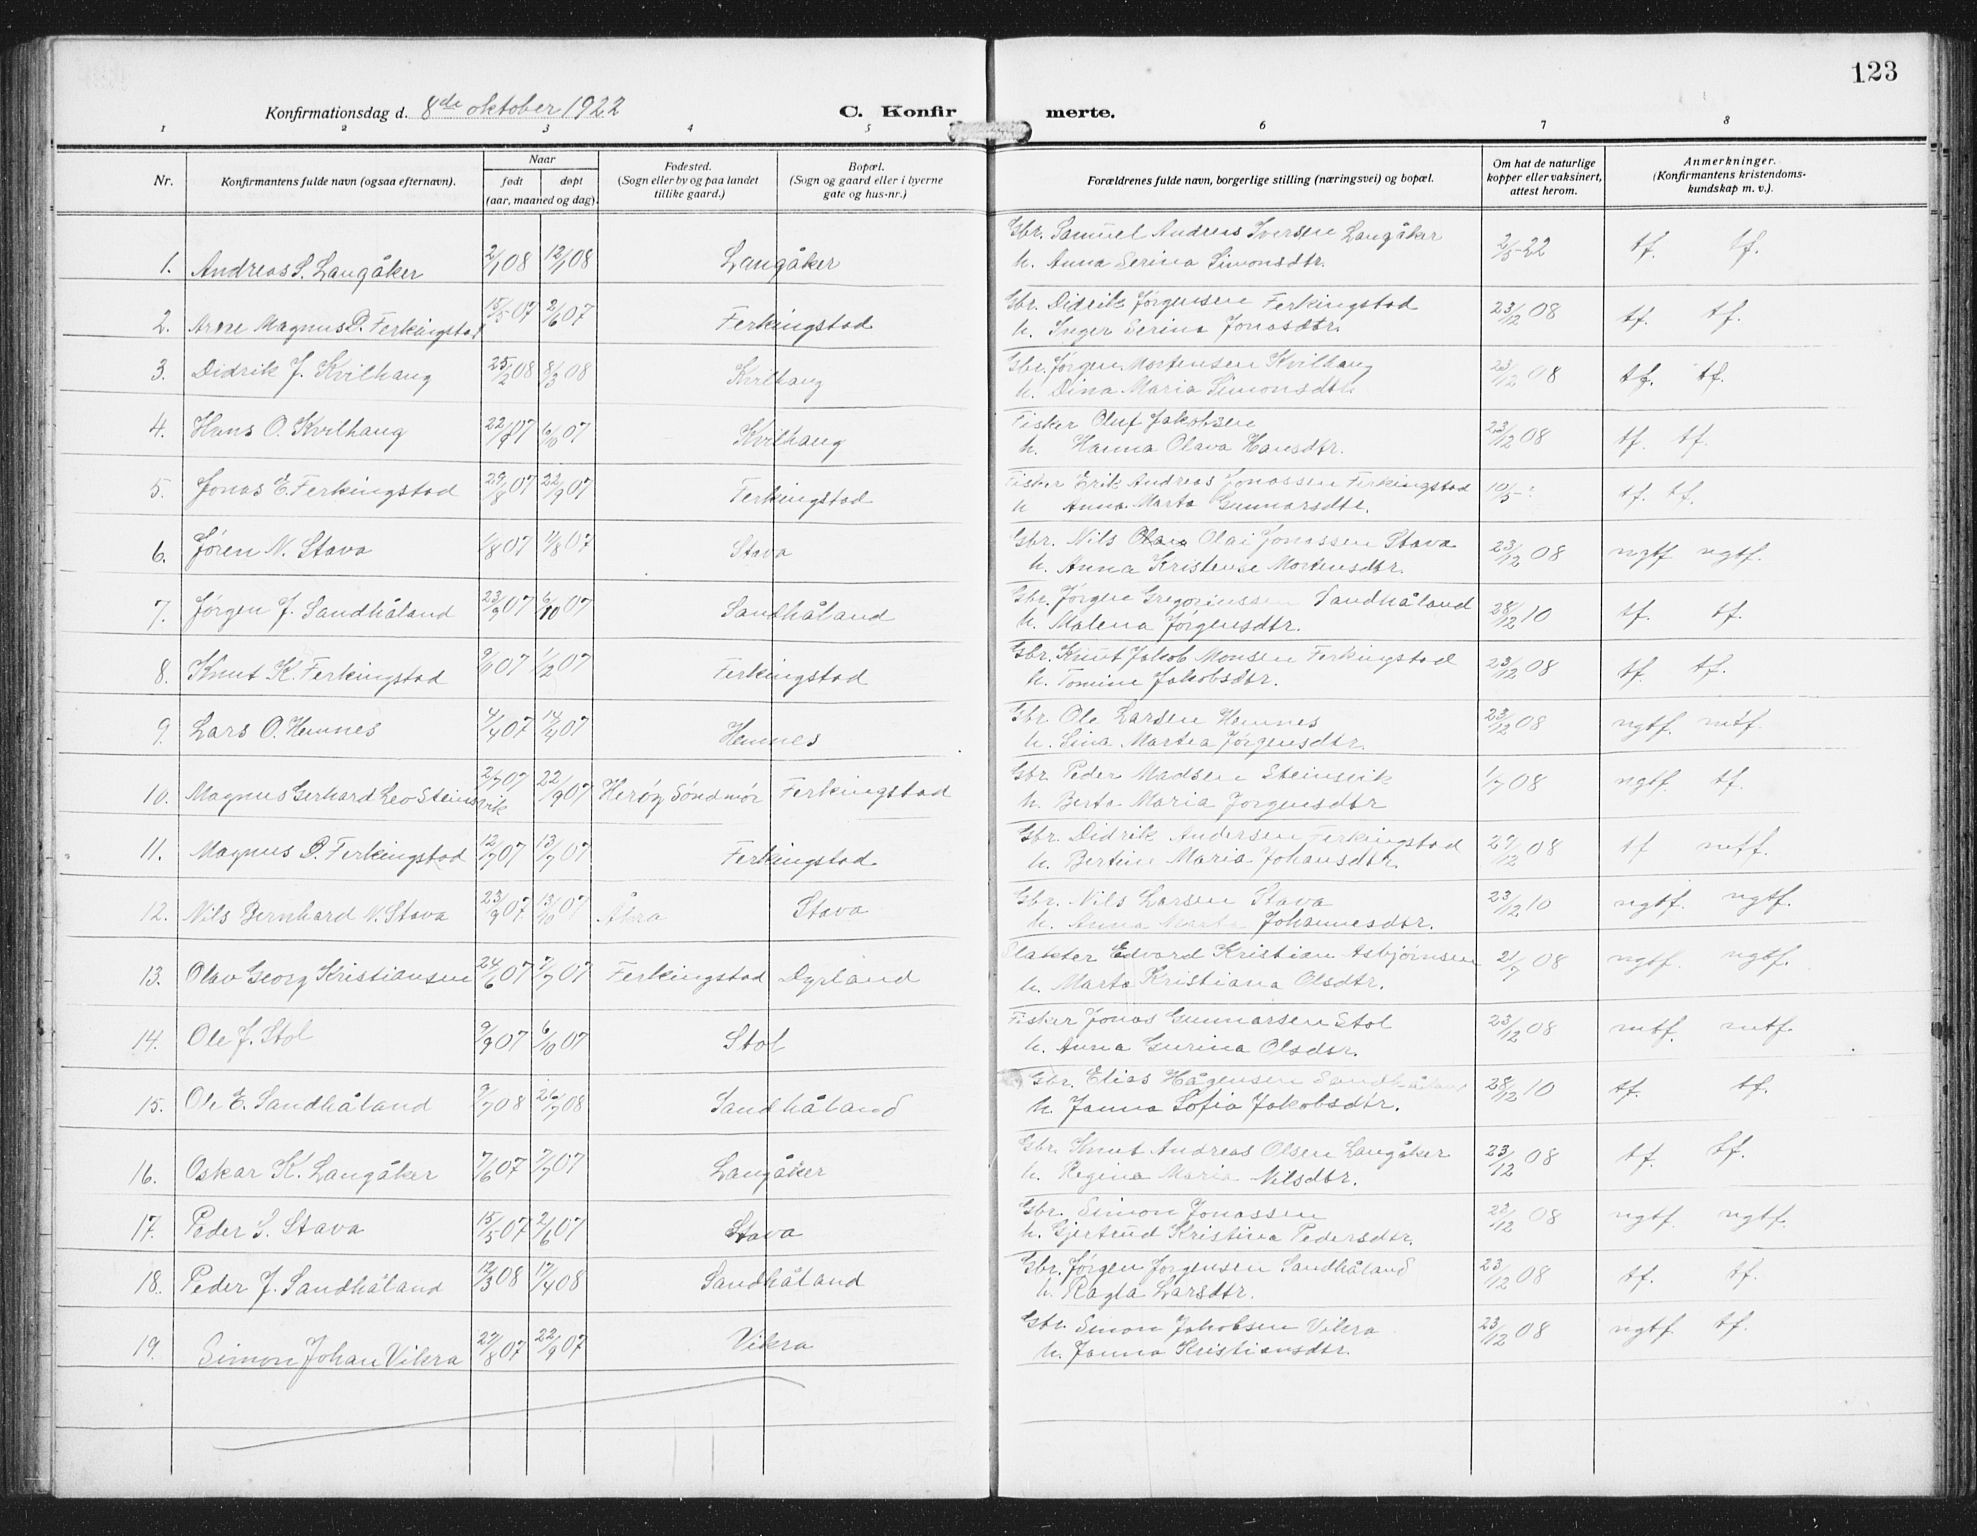 123
Konfirmationsdag d. 8de oktober 1922
C. Konfirmerte.
1 2 3 4 5 6 7 8
Nr. Konfirmantens fulde navn (ogsaa efternavn). Naar født døpt (aar, maaned og dag). Fødested. (Sogn eller by og paa landet tillike gaard.) Bopæl. (Sogn og gaard eller i byerne gate og hus-nr.) Forældrenes fulde navn, borgerlige stilling (næringsvei) og bopæl. Om hat de naturlige kopper eller vaksinert, attest herom. Anmerkninger. (Konfirmantens kristendomskundskap m. v.).
1. Andreas S. Langåker 2/1 08 12/1 08 Langåker Gbr. Samuel Andreas Iversen Langåker 2/5-22 tf. tf.
h. Anna Serina Simonsdtr.
2. Arne Magnus D. Ferkingstad 15/5 07 2/6 07 Ferkingstad Gbr. Didrik Jørgensen Ferkingstad 23/12 08 tf. tf.
h. Inger Serina Jonasdtr.
3. Didrik J. Kvilhaug 25/2 08 8/3 08 Kvilhaug Gbr. Jørgen Mortensen Kvilhaug 23/12 08 tf. tf.
h. Dina Maria Simonsdtr.
4. Hans O. Kvilhaug 22/9 07 6/10 07 Kvilhaug Fisker Oluf Jakobsen 23/12 08 tf. tf.
h. Hanna Olava Hansdtr.
5. Jonas E. Ferkingstad 29/8 07 22/9 07 Ferkingstad Fisker Erik Andreas Jonassen Ferkingstad 10/5 tf. tf.
h Anna Marta Gunnarsdtr.
6. Jøren N. Stava 1/8 07 11/8 07 Stava Gbr. Nils Olai Jonassen Stava 23/12 08 ngtf ngtf.
h. Anna Kristense Mortensdtr.
7. Jørgen J. Sandhåland 23/9 07 6/10 07 Sandhåland Gbr. Jørgen Gregoriussen Sandhåland 28/12 10 tf. tf.
h. Malena Jørgensdtr.
8. Knut K. Ferkingstad 07 1/12 07 Ferkingstad Gbr. Knut Jakob Monsen Ferkingstad 23/12 08 tf. tf.
h. Tomine Jakobsdtr.
9. Lars O. Hemnes 4/4 07 14/4 07 Hemnes Gbr Ole Larsen Hemnes 23/12 08 ngtf. mtf.
h. Sina Martea Jørgensdtr.
10. Magnus Gerhard Leo Steinsvik 2/7 07 22/9 07 Herøy Söndmör Ferkingstad Gbr Peder Madsen Steinsvik 1/7 08 ngtf. tf.
h. Berta Maria Jørgensdtr
11. Magnus D. Ferkingstad 12/7 07 13/7 07 Ferkingstad Gbr. Didrik Andersen Ferkingstad 29/12 08 tf mtf.
h. Bertine Maria Johansdtr.
12. Nils Bernhard N. Stava 23/9 07 13/10 07 Åkra Stava Gbr. Nils Larsen Stava 23/12 10 ngtf. ngtf.
h. Anna Marta Johannesdtr.
13. Olav Georg Kristiansen 24/6 07 7/7 07 Ferkingstad Dyrland Slakter Edvard Kristian Asbjørnsen 21/7 08 ngtf. ngtf.
h. Marta Kristiana Olsdtr.
14. Ole J. Stol 9/9 07 6/10 07 Stol Fisker Jonas Gunnarsen Stol 23/12 08 mtf. mtf.
h. Anna Gurina Olsdtr.
15. Ole E. Sandhåland 9/7 08 26/7 08 Sandhåland Gbr. Elias Hågensen Sandhåland 28/12 10 tf. tf.
h. Janna Sofia Jakobsdtr.
16. Oskar K. Langåker 7/6 07 7/7 07 Langåker Gbr. Knut Andreas Olsen Langåker 23/12 08 tf. tf.
h. Regine Maria Nilsdtr.
17. Peder S. Stava 15/5 07 2/6 07 Stava Gbr. Simon Jonassen 23/12 08 ngtf. ngtf.
h. Gjertrud Kristina Pedersdtr.
18. Peder J. Sandhåland 12/3 08 17/4 08 Sandhåland Gbr. Jørgen Jørgensen Sandhåland 23/12 08 tf. tf.
h. Ragla Larsdtr.
19. Simon Johan Vikra 29/8 07 22/9 07 Vikra Gbr. Simon Jakobsen Vikra 23/12 08 ngtf. tf.
h. Janna Kristiansdtr.